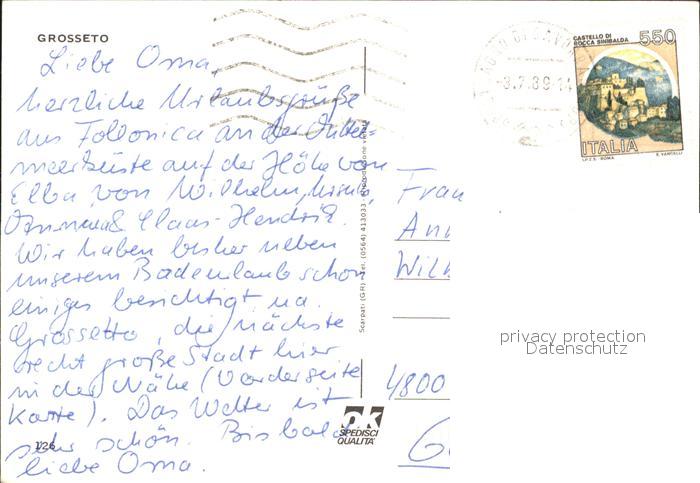 GROSSETO
Liebe Oma,
herzliche Urlaubsgrüße
aus Follonica an der
meerküste auf der Höhe von
Elba von Wilhelm,
Claas-Hendrik.
Wir haben bisher neben
unserem Badeurlaub schon
einiges besichtigt, u.a.
Grossetto, die nächste
recht große Stadt hier
in der Nähe (Vorderseite
Karte). Das Wetter ist
sehr schön. Bis bald
liebe Oma.
1/26
Scarpati (GR) (0564) 413033
ok
SPEDISCI
QUALITÀ
-3.7.89
CASTELLO DI
ROCCA SINIBALDA
550
ITALIA
I.P.Z.S. - ROMA
E. VANGELLI
Frau
4800
privacy protection
Datenschutz